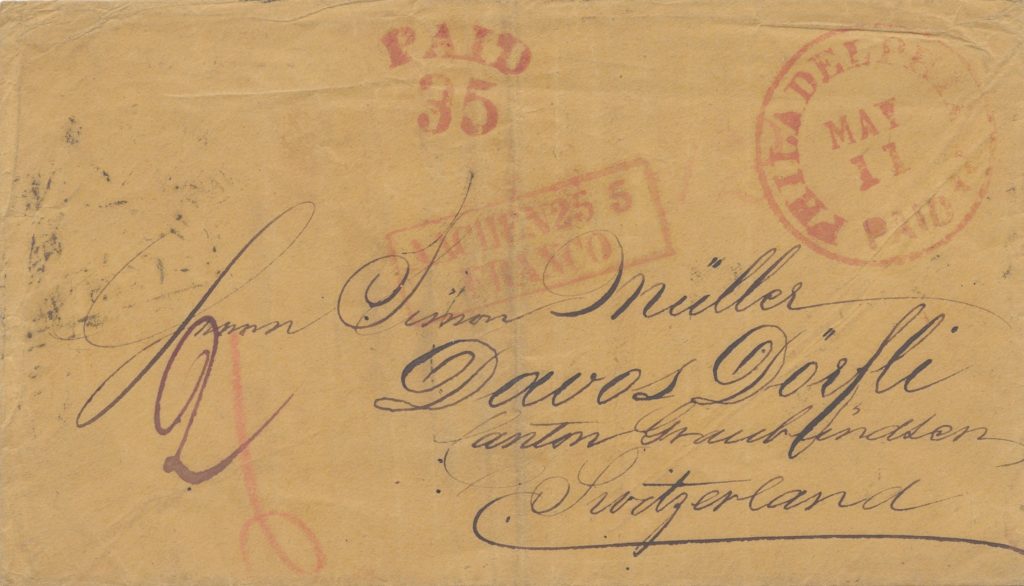 PAID
35
PHILADELPHIA
MAY
11
PAID
AACHEN 25 5
FRANCO
Herrn Simon Müller
2
Davos Dörfli
Canton Graubündten
Switzerland